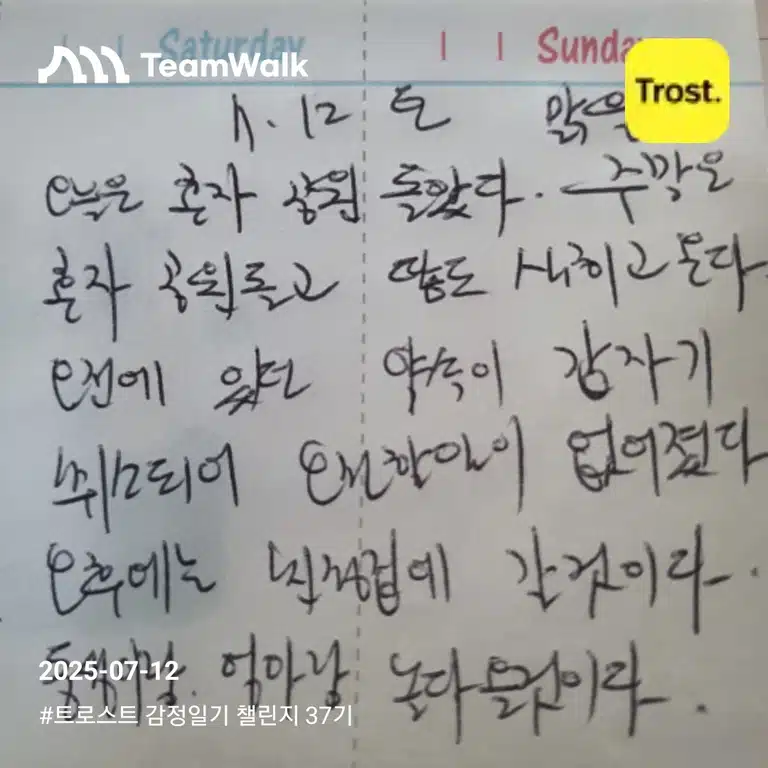 Saturday Sunday
TeamWalk
Trost.
7.12 토 맑음
오늘은 혼자 공원 돌았다. 주말은
혼자 공원돌고 땀도 시키고 온다.
오전에 있던 약속이 갑자기
취소되어 오전할일이 없어졌다
오후에는 친정집에 갈것이다.
엄마랑 놀다올것이다.
2025-07-12
#트로스트 감정일기 챌린지 37기